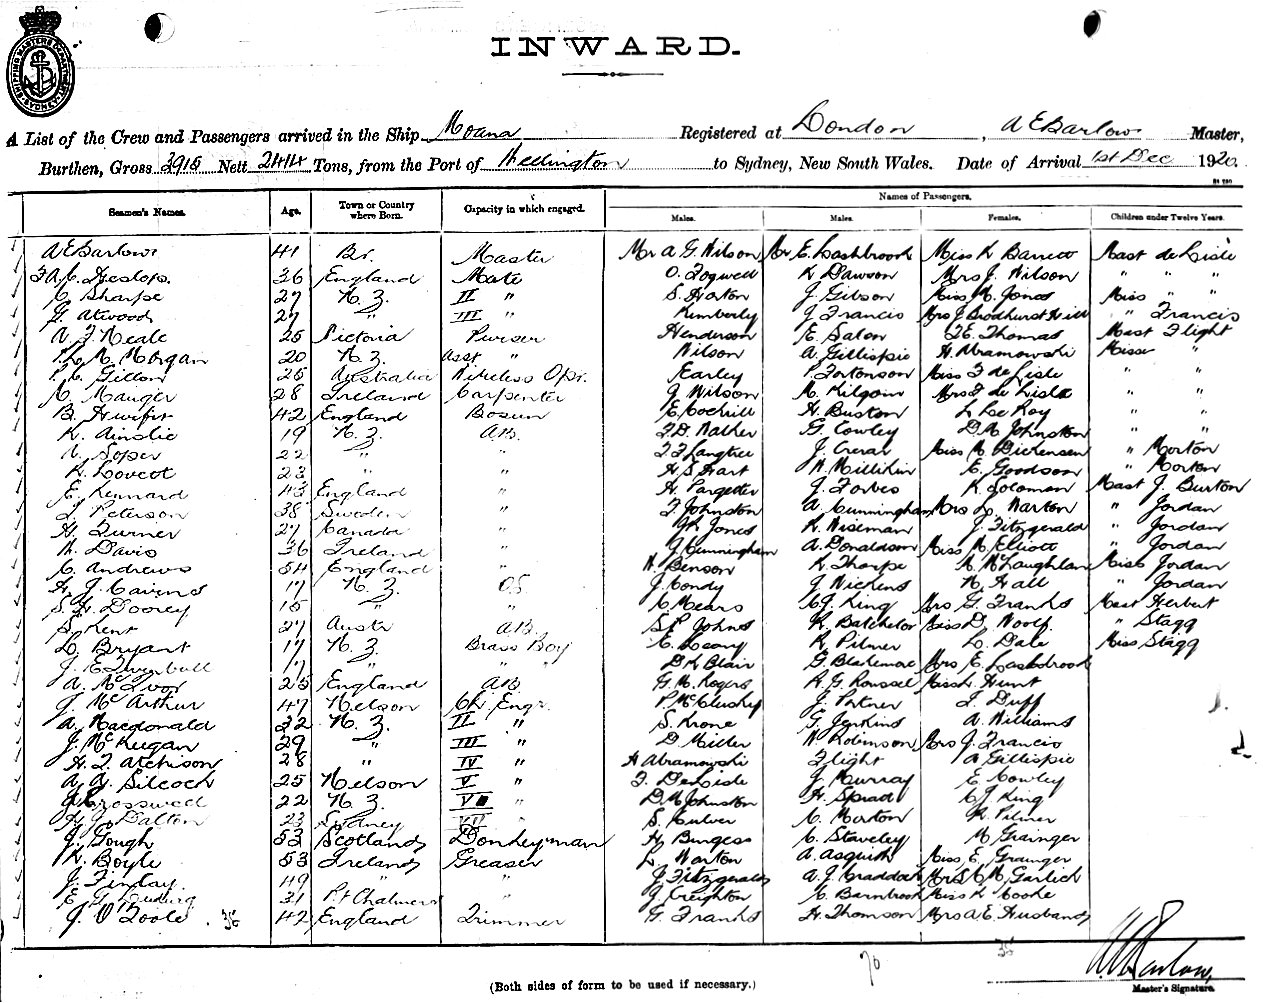 SHIPPING MASTERS DEPARTMENT SYDNEY
INWARD.
A List of the Crew and Passengers arrived in the Ship Moana Registered at London, A E Barlow Master,
Burthen, Gross 3915 Nett 2414 Tons, from the Port of Wellington to Sydney, New South Wales. Date of Arrival 1st Dec 1920
Names of Passengers.
Seamen's Names. Age. Town or Country where Born. Capacity in which engaged. Males. Males. Females. Children under Twelve Years.
A E Barlow 41 Br. Master Mr A G Wilson Mr E Lashbrook Miss K Barrett Mast de Lisle
F A C Heslop. 36 England Mate O. Fogwell K Dawson Mrs J. Wilson " " "
C Sharpe 27 N.Z. II " S. Hoton J. Gibson Miss M. Jones Miss " "
G. Atwood 27 " III " Kimberly J Francis Mrs J Brodhurst Hill " Francis
A J Neale 25 Victoria Purser Henderson E Saton F.E. Thomas Mast Flight
M. Morgan 20 N.Z. Asst " Wilson A. Gillispie H. Abramowski Misse "
P. C. Gillon 25 Australia Wireless Opr. Earley P Tortonson Miss F de Lisle " "
C. Mauger 28 Ireland Carpenter J Wilson C. Kilgour Mrs F de Lisle " "
B. 42 England Bosun E Cockrill H. Buston L Le Roy " "
K. Ainslie 19 N.Z. A.B. F.D. Mather G. Cowley D M Johnston " "
V. Soper 22 " " F.F. Langtree J. Crerar Miss M. Dickensen " Morton
K. Lovcot 23 " " H.S. Hart W Millikin E. Goodson " Morton
E. Kennard 43 England " H. Pargeter J. Forbes K. Solomon Mast J. Burton
J. Peterson 38 Sweden " J. Johnston A Cunningham Mrs L. Warton " Jordan
H. Turner 27 Canada " Jones K Wiseman J. Fitzgerald " Jordan
W. Davis 36 Ireland " J Cunningham A. Donaldson Miss M Elliott " Jordan
C. Andrews 54 England " W. Benson K Tharpe A McLaughlan Miss Jordan
H. J. Cavens 17 N.Z. O.S J. Condy J Wickens M. Hall " Jordan
S. H. Doorey 15 " " C Mears C.J. King Mrs G. Franks Mast Herbert
S. Kent 27 Austr A.B. St Johns K. Batchelor Miss D. Woolf " Stagg
L. Bryant 17 N.Z. Brass Boy E. Leany K Pilmer L. Dale Miss Stagg
J. E Turnbull 17 " " " D K Blair G Blakemore Mrs E. Lashbrook
A. McIvor 25 England AB G. M. Rogers H. G. Roussel Miss L. Hunt
J. McArthur 47 Nelson Ch. Engr. P. McCluskey J. Palmer J. Duff
A. Macdonald 32 N.Z. II " S. Krone G. Jenkins A. Williams
J. McKeegan 29 " III " D. Miller W Robinson Mrs J. Francis
H. J. Atchison 28 " IV " H Abramowski Flight A Gillispie
A. A. Silcock 25 Nelson V " F. DeLisle J. Murray E. Cowley
J Cresswell 22 N.Z. VI " D.M. Johnston H. Sprad C J King
H J Dalton 23 Sydney VII " S. Culver C. Morton K. Pilmer
J. Gough 53 Scotland Donkeyman H. Burgess C Staveley M. Grainger
K. Boyle 53 Ireland Greaser L. Warton A. Asquith Miss E. Grainger
J. Finlay. 49 " " J. Fitzgerald A. J. Craddock Mrs M. Garlick
E G Ludwig 31 Pt Chalmers " J. Creighton C. Barnbrook Miss K Cooke
J. O'Toole 42 England Trimmer G. Franks H. Thomson Mrs A. E. Husband
35
70
35
A E Barlow
(Both sides of form to be used if necessary.)
Master's Signature.